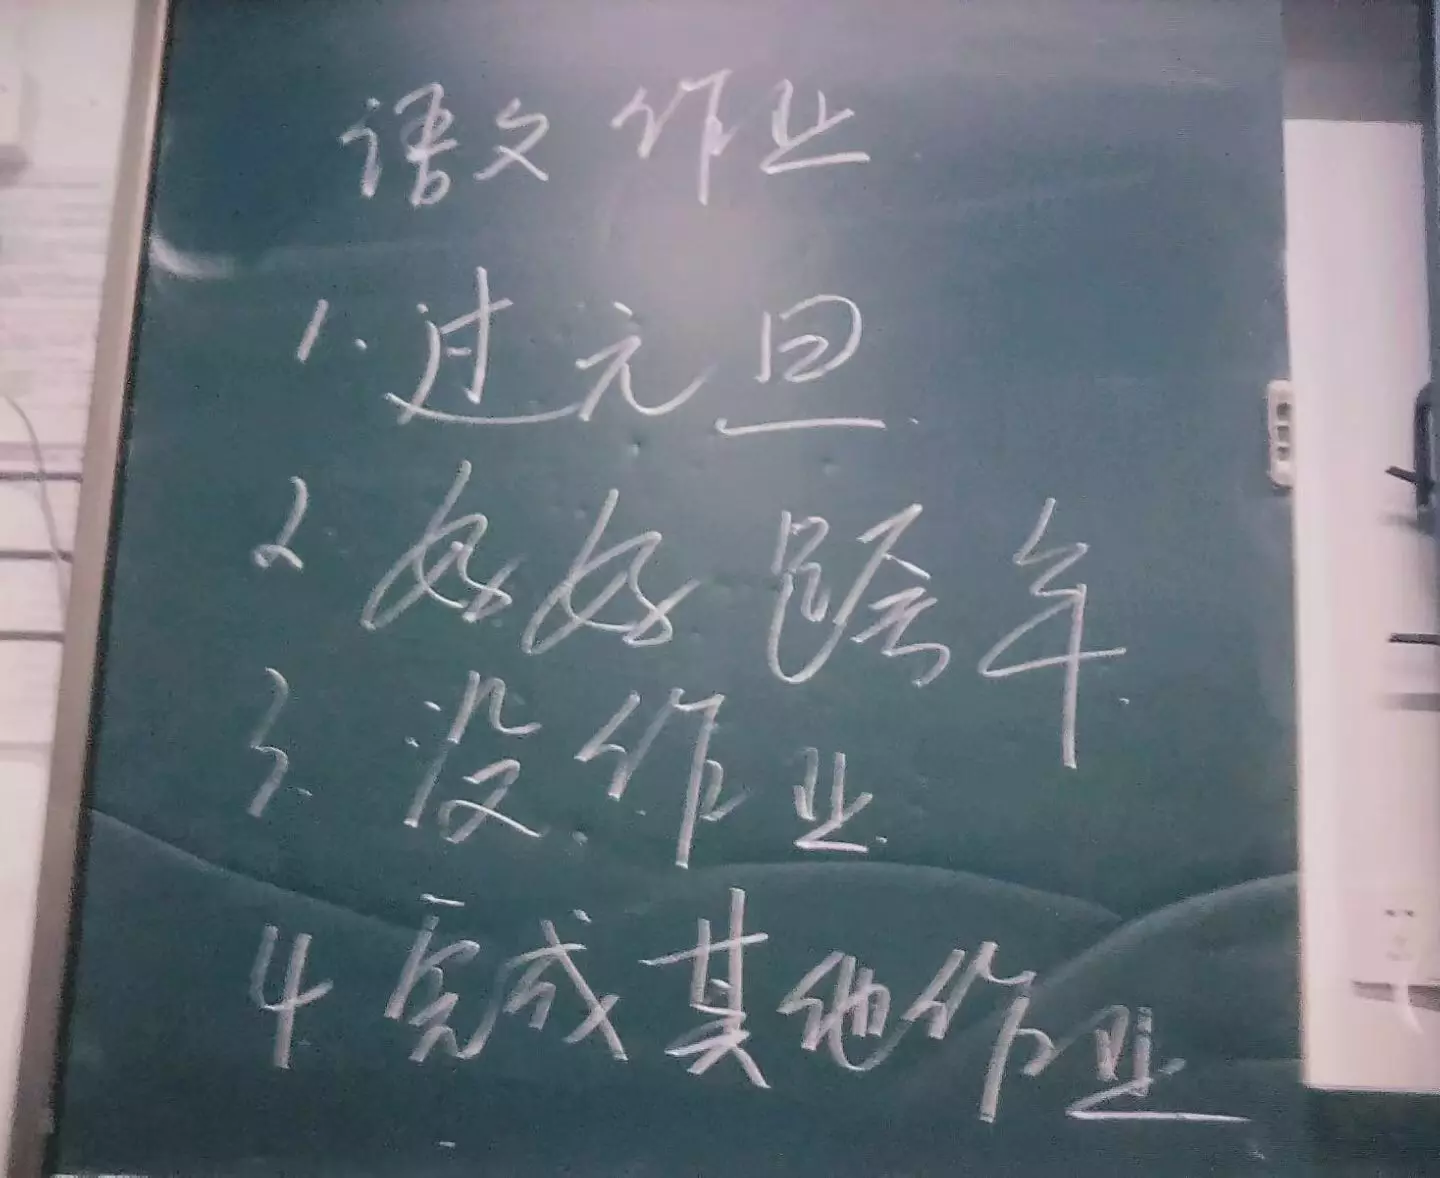 语文作业
1. 过元旦.
2. 好好跨年.
3. 没作业.
4 完成其他作业.